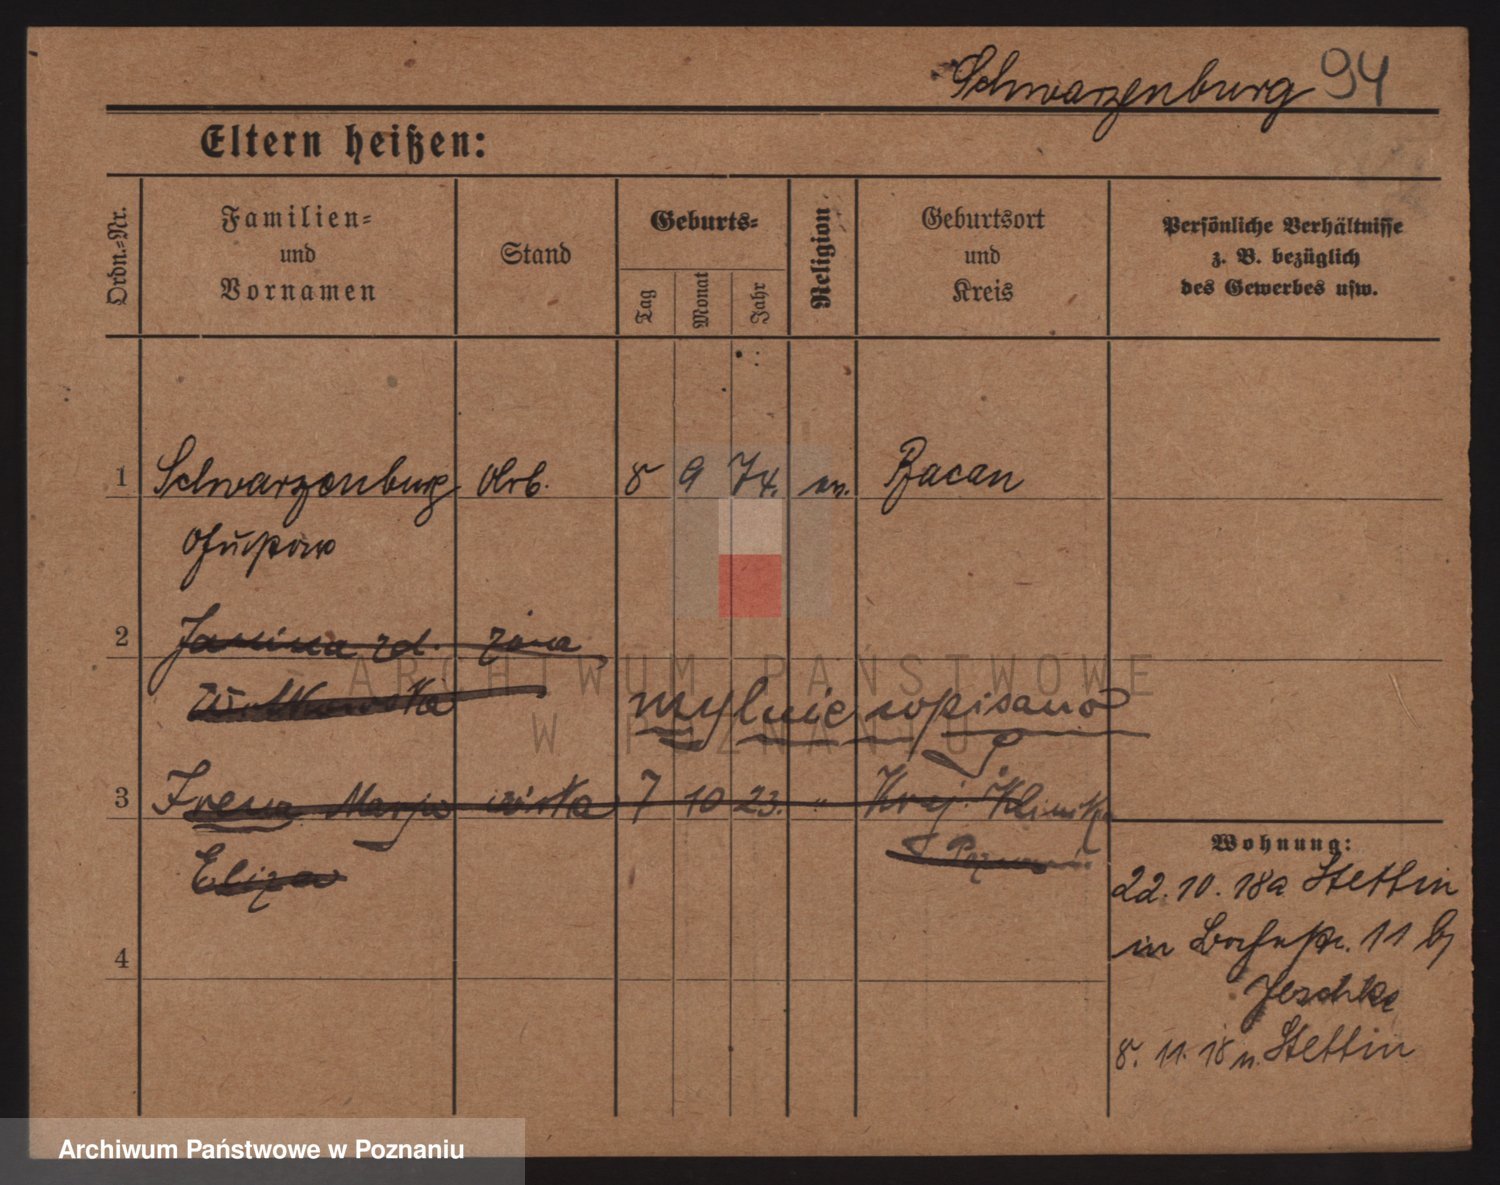 Schwarzenburg 94
Eltern heißen:
Ordn.=Nr.
Familien=
und
Vornamen
Stand
Geburts=
Tag
Monat
Jahr
Religion
Geburtsort
und
Kreis
Persönliche Verhältnisse
z. B. bezüglich
des Gewerbes usw.
1 Schwarzenburg Arb. 8 9 74. ev.
2 Janina zd. żona
mylnie wpisano
3 Irena Marja córka 7 10 23. " Kraj. Klinika
Eliza Poznań
Wohnung:
22. 10. 18 a Stettin
in 11 b/
Jeschke
8. 11. 18 n. Stettin
4
ARCHIWUM PAŃSTWOWE
W POZNANIU
Archiwum Państwowe w Poznaniu